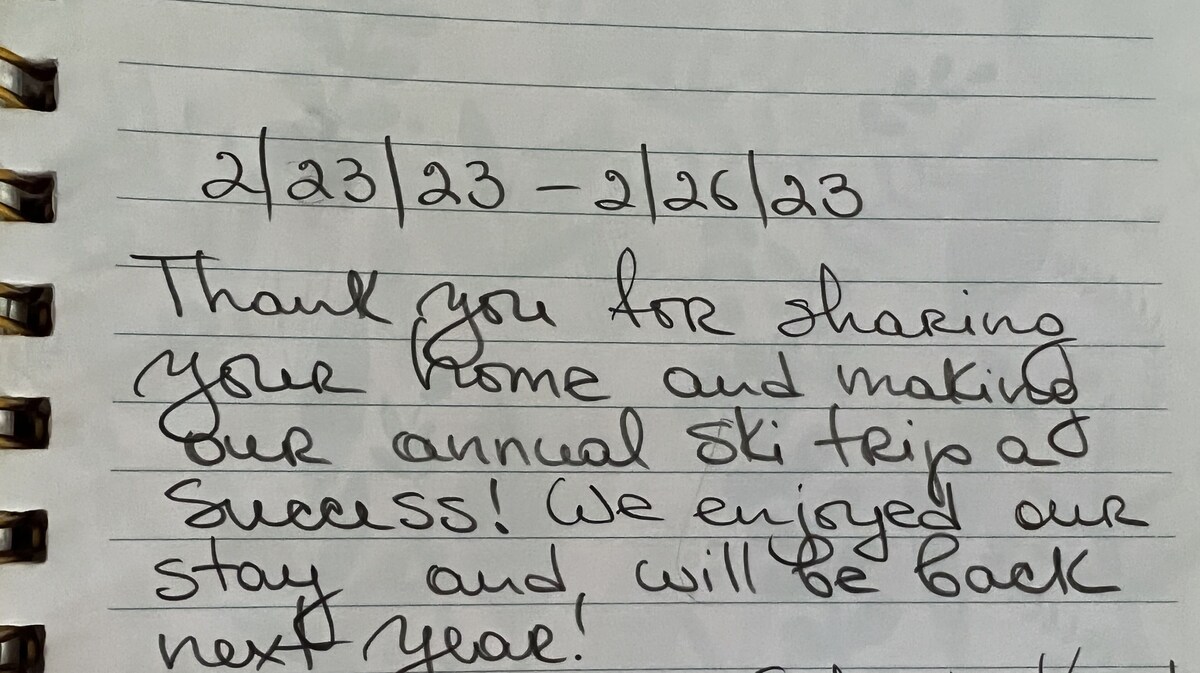 2/23/23 - 2/26/23
Thank you for sharing
your home and making
our annual ski trip a
success! We enjoyed our
stay and, will be back
next year!